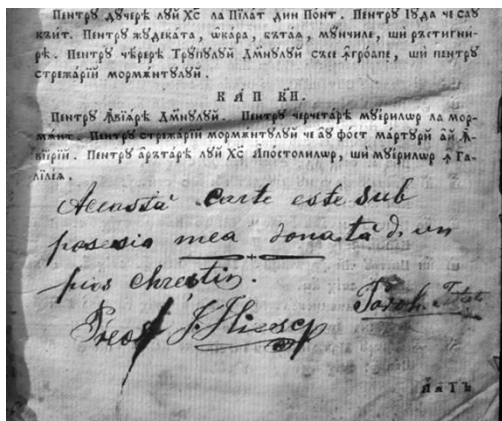 Пентру дꙋчерѣ лꙋй Х҃С ла Пїлат дин Понт. Пентру Іꙋда че саꙋ
къит. Пентру жꙋдеката, ѡкара, бътаѧ, мꙋнчиле, ши ръстигни-
рѣ. Пентру черерѣ Трꙋпꙋлꙋй Дмнꙋлꙋй съсе ꙟгроапе, ши пентру
стрежарїй мормѫнтꙋлꙋй.
КАП КИ.
Пентру ꙟвїарѣ Дмнꙋлꙋй. Пентру черчетарѣ мꙋерилѡр ла мор-
мѫнт. Пентру стрежарїй мормѫнтꙋлꙋй че аꙋ фост мартꙋри ай ꙟ-
вїерїй. Пентру арътарѣ лꙋй Х҃С Апостолилѡр, ши мꙋерилѡр ꙟ Га-
лїлеѧ.
Această carte este sub
posesia mea donată d. un
pios chrestin.
Preot J. Iliescu Paroh